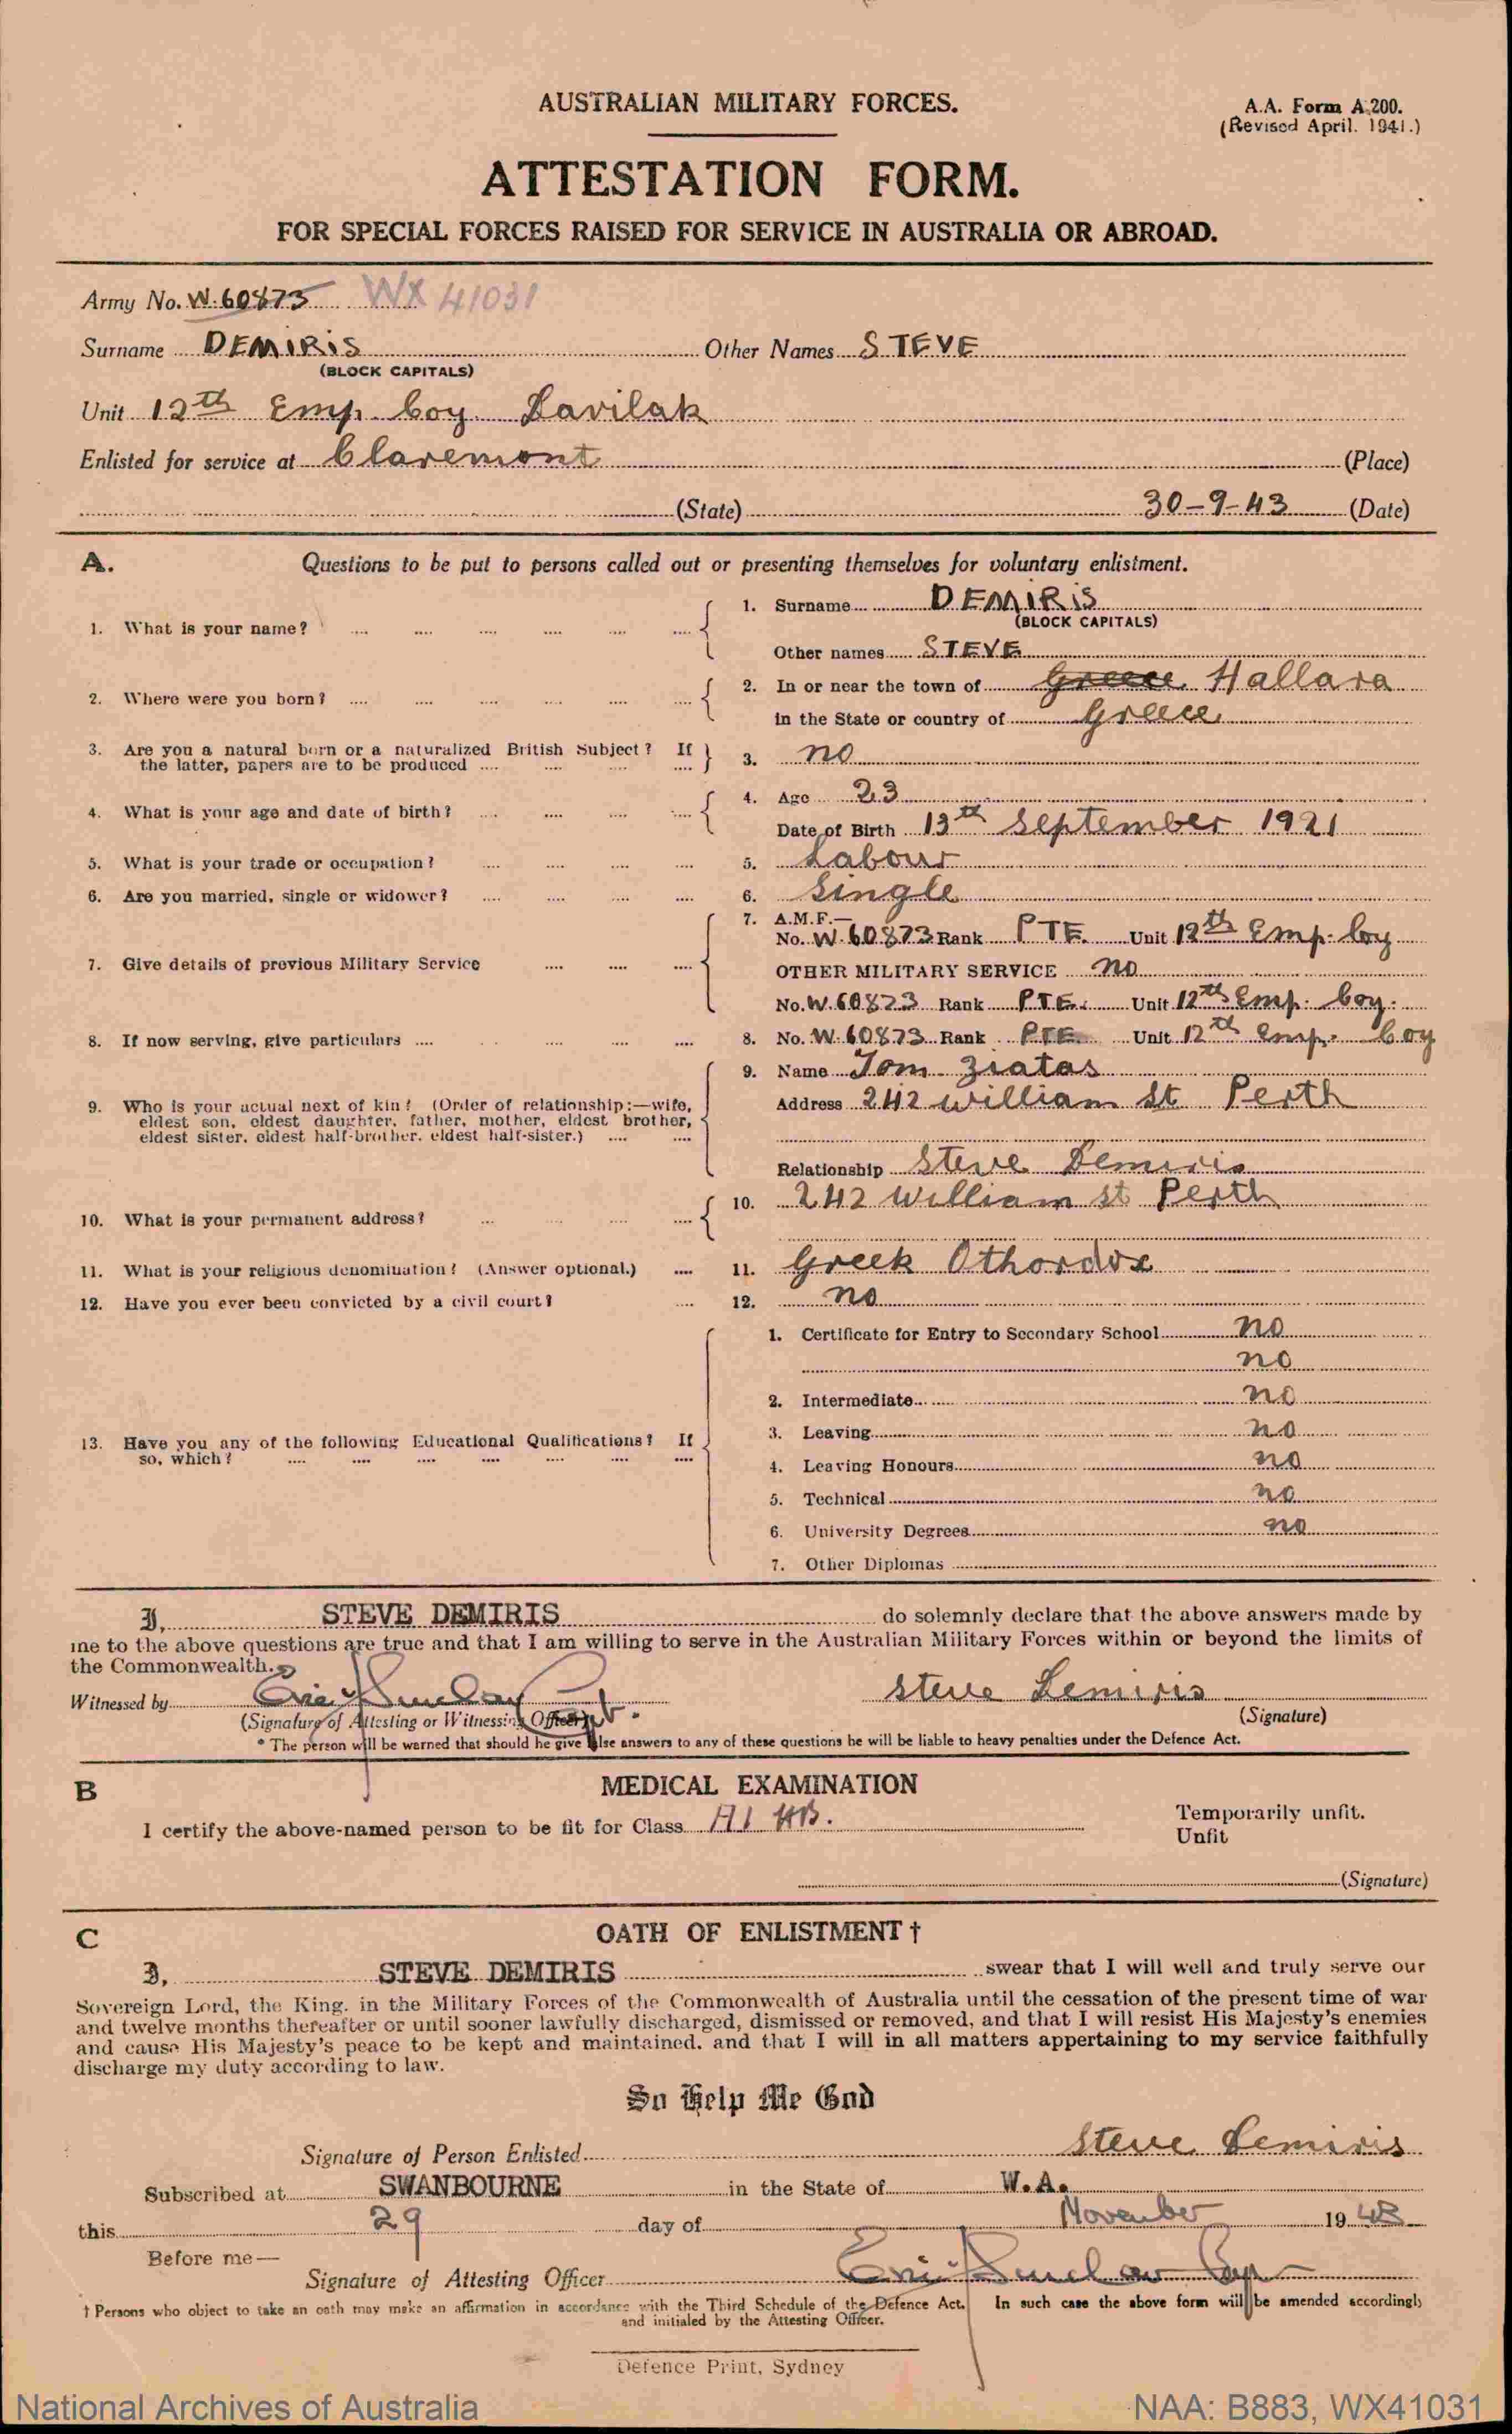 AUSTRALIAN MILITARY FORCES.
A.A. Form A.200.
(Revised April. 1941.)
ATTESTATION FORM.
FOR SPECIAL FORCES RAISED FOR SERVICE IN AUSTRALIA OR ABROAD.
Army No. W.60873 WX 41031
Surname DEMIRIS Other Names STEVE
(BLOCK CAPITALS)
Unit 12th Emp. Coy. Karilak
Enlisted for service at Claremont (Place)
(State) 30-9-43 (Date)
A. Questions to be put to persons called out or presenting themselves for voluntary enlistment.
1. What is your name? 1. Surname DEMIRIS
(BLOCK CAPITALS)
Other names STEVE
2. Where were you born? 2. In or near the town of Greece Hallara
in the State or country of Greece
3. Are you a natural born or a naturalized British Subject? If
the latter, papers are to be produced 3. no
4. What is your age and date of birth? 4. Age 23
Date of Birth 13th September 1921
5. What is your trade or occupation? 5. Labour
6. Are you married, single or widower? 6. Single
7. Give details of previous Military Service 7. A.M.F.—
No. W.60873 Rank PTE. Unit 12th Emp. Coy
OTHER MILITARY SERVICE no
No. W.60873 Rank PTE. Unit 12th Emp. Coy.
8. If now serving, give particulars 8. No. W.60873 Rank PTE Unit 12th Emp. Coy
9. Who is your actual next of kin? (Order of relationship:—wife,
eldest son, eldest daughter, father, mother, eldest brother,
eldest sister, eldest half-brother, eldest half-sister.)
9. Name Tom Ziatas
Address 242 William St Perth
Relationship Steve Demiris
10. What is your permanent address? 10. 242 William St Perth
11. What is your religious denomination? (Answer optional.) 11. Greek Othordox
12. Have you ever been convicted by a civil court? 12. no
13. Have you any of the following Educational Qualifications? If
so, which?
1. Certificate for Entry to Secondary School no
no
2. Intermediate no
3. Leaving no
4. Leaving Honours no
5. Technical no
6. University Degrees no
7. Other Diplomas
I, STEVE DEMIRIS do solemnly declare that the above answers made by
me to the above questions are true and that I am willing to serve in the Australian Military Forces within or beyond the limits of
the Commonwealth.
Witnessed by Steve Demiris
(Signature of Attesting or Witnessing Officer) (Signature)
* The person will be warned that should he give false answers to any of these questions he will be liable to heavy penalties under the Defence Act.
B MEDICAL EXAMINATION
I certify the above-named person to be fit for Class A1 Temporarily unfit.
Unfit
(Signature)
C OATH OF ENLISTMENT †
I, STEVE DEMIRIS swear that I will well and truly serve our
Sovereign Lord, the King, in the Military Forces of the Commonwealth of Australia until the cessation of the present time of war
and twelve months thereafter or until sooner lawfully discharged, dismissed or removed, and that I will resist His Majesty's enemies
and cause His Majesty's peace to be kept and maintained, and that I will in all matters appertaining to my service faithfully
discharge my duty according to law.
So Help Me God
Signature of Person Enlisted Steve Demiris
Subscribed at SWANBOURNE in the State of W.A.
this 29 day of November 1943
Before me—
Signature of Attesting Officer
† Persons who object to take an oath may make an affirmation in accordance with the Third Schedule of the Defence Act. In such case the above form will be amended accordingly
and initialed by the Attesting Officer.
Defence Print, Sydney
National Archives of Australia NAA: B883, WX41031